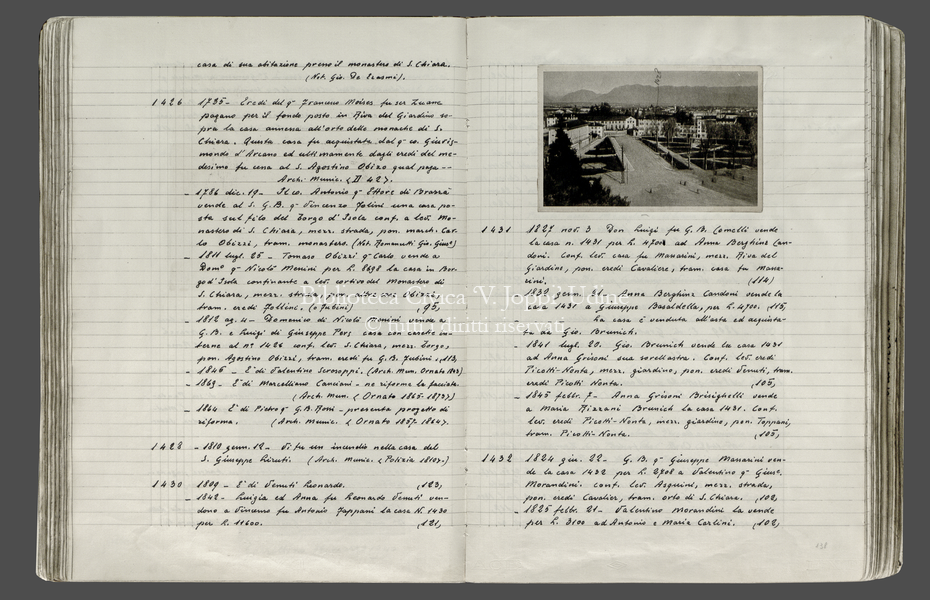 casa di sua abitazione presso il monastero di S. Chiara.
(Not. Gio. De Erasmi).
1426 1735 - Eredi del q.m Francesco Moises fu ser Zuane
pagano per il fondo posto in Riva del Giardino so-
pra la casa annessa all'orto delle monache di S.
Chiara. Questa casa fu acquistata dal q.m co. Girolis-
mondo d'Arcano ed ultimamente dagli eredi del me-
desimo fu cessa al S. Agostino Obizo qual paga --
Arch. Munic. (II 42).
- 1786 dic. 19 - Il co. Antonio q.m Ettore di Brazzà
vende al S. G.B. q.m Vincenzo Jolini una casa po-
sta sul filo del Borgo d'Isola conf. a lev. Mo-
nastero di S. Chiara, mezz. strada, pon. march. Car-
lo Obizzi, tram. monastero. (Not. Romanutti Gio. Gius.)
- 1811 lugl. 25 - Tomaso Obizzi q.m Carlo vende a
Dom.o q.m Nicolò Menini per L. la casa in Bor-
go d'Isola confinante a lev. cortivo del Monastero di
S. Chiara, mezz.
tram. eredi Jollini. (o Jubini) (95,
- 1812 ag. 4 - Domenico di Nicolò Monini vende a
G.B. e Luigi di Giuseppe case con casette in-
terne al n° 1426 conf. lev. S. Chiara, mezz. Borgo,
pon. Agostino Obizzi, tram. eredi fu G.B. Jubini (113,
- 1846 - È di Valentino Serosoppi. (Arch. Mun. Ornato 1843)
- 1869 - È di Marcelliano Canciani - ne riforma la facciata.
(Arch. Mun. (Ornato 1865-1873))
- 1864 È di Pietro q.m G.B. Rossi - presenta progetto di
riforma. (Arch. Munic. (Ornato 1857-1864).
1428 - 1810 genn. 12 - Vi fu un incendio nella casa del
S. Giuseppe Liruti. (Arch. Munic. (Polizia 1810.)
1430 1809 - È di Venuti Leonardo. (123,
- 1842 - Luigia ed Anna fu Leonardo Venuti ven-
dono a Vincenzo fu Antonio Jappani la casa N. 1430
per L. 11600. (121,
1431 1827 nov. 3 Don Luigi fu G.B. Comelli vende
la casa n. 1431 per L. 4708 ad Anna Berghinz Can-
doni. Conf. lev. casa fu Massarini, mezz. Riva del
Giardino, pon. eredi Cavaliere, tram. casa fu Massa-
rini. (114)
- 1839 genn. 31 - Anna Berghinz Candoni vende la
casa 1431 a Giuseppe Basaldella, per L. 4700. (115,
La casa è venduta all'asta ed acquista-
ta da Gio. Brunich.
- 1841 lugl. 20. Gio. Brunich vende la casa 1431
ad Anna Grisoni sua sorellastra. Conf. lev. eredi
Picotti-Nonta, mezz. giardino, pon. eredi Venuti, tram.
eredi Picotti Nonta. (105,
- 1845 febbr. 7 - Anna Grisoni Brisighelli vende
a Maria Rizzani Brunich la casa 1431. Conf.
lev. eredi Picotti-Nonta, mezz. giardino, pon. Toppani,
tram. Picotti-Nonta. (105,
1432 1824 giu. 22 - G.B. q.m Giuseppe Massarini ven-
de la casa 1432 per L. 2708 a Valentino q.m Gius.e
Morandini. conf. lev. Asquini, mezz. strada,
pon. eredi Cavalier, tram. orto di S. Chiara. (102,
- 1825 febbr. 21 - Valentino Morandini la vende
per L. 3100 ad Antonio e Maria Carlini. (102,
138
Biblioteca Civica 'V. Joppi' Udine
© tutti i diritti riservati